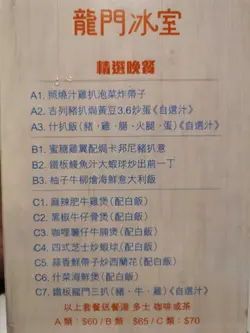 龍門冰室
精選晚餐
A1. 照燒汁雞扒泡菜炸帶子
A2. 吉列豬扒焗黃豆3.6炒蛋《自選汁》
A3. 什扒飯（豬．雞．腸．火腿．蛋）《自選汁》
B1. 蜜糖雞翼配卡邦尼豬扒意
B2. 鐵板鰻魚汁大蝦球炒出前一丁
B3. 柚子牛柳燴海鮮意大利飯
C1. 麻辣肥牛雞煲（配白飯）
C2. 黑椒牛仔骨煲（配白飯）
C3. 咖喱薯仔牛腩煲（配白飯）
C4. 四式芝士炒蝦球（配白飯）
C5. 蒜香鮮帶子炒西蘭花（配白飯）
C6. 什菜海鮮煲（配白飯）
C7. 鐵板龍門三扒（豬．牛．雞）《自選汁》
以上套餐送餐湯 多士 咖啡或茶
A類：$60 / B類：$65 / C類：$70